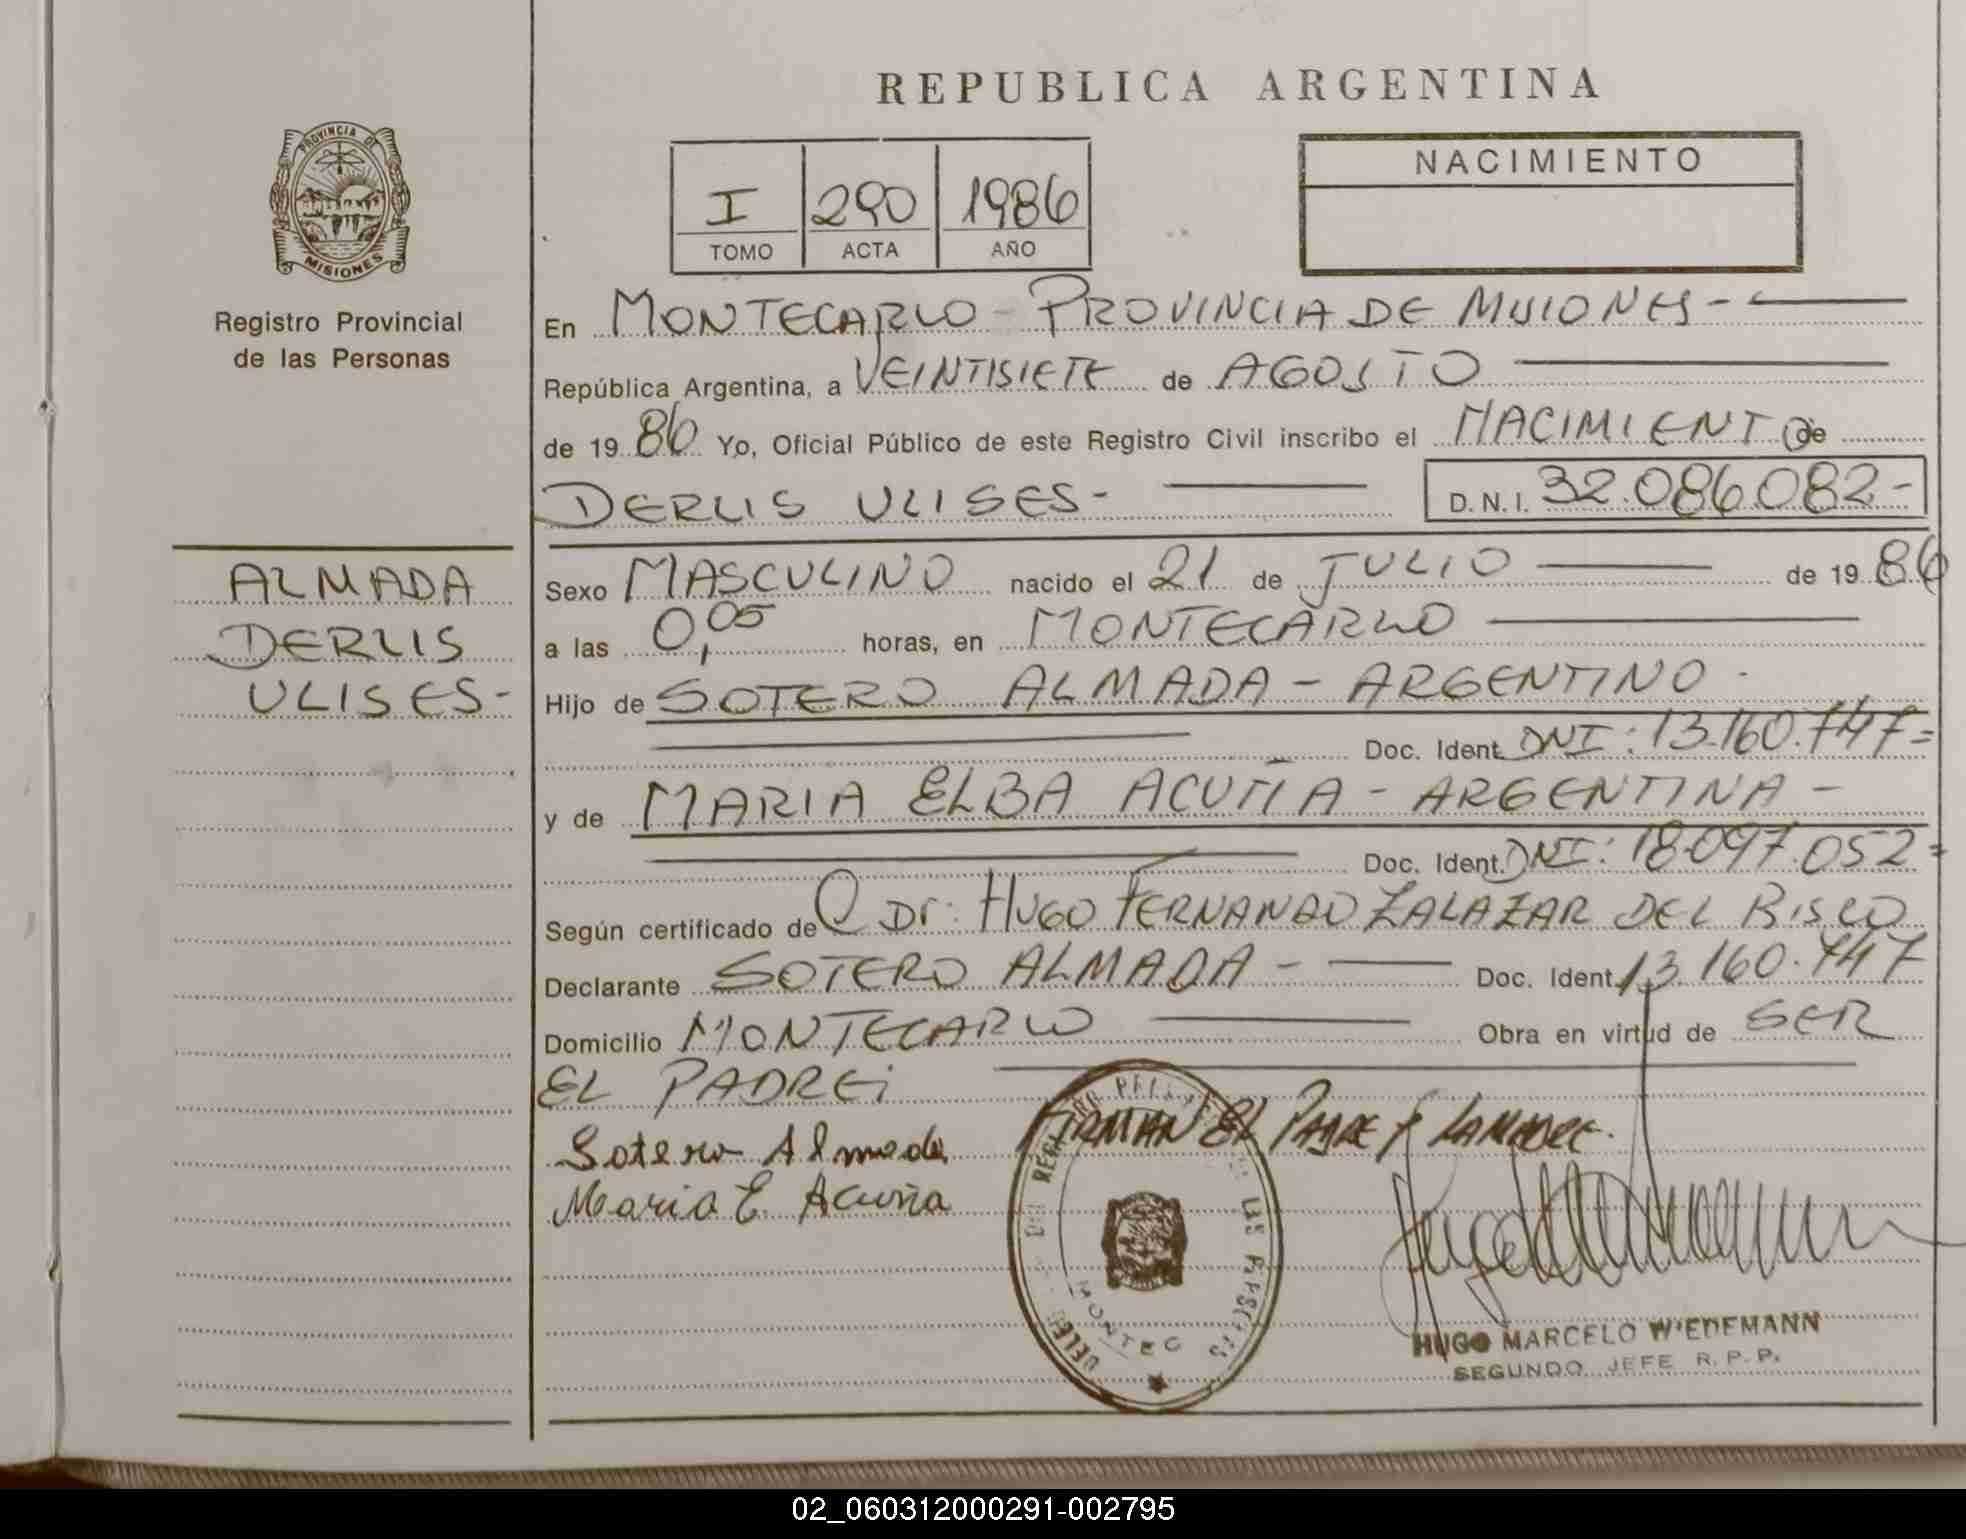 REPUBLICA ARGENTINA
PROVINCIA DE
MISIONES
Registro Provincial
de las Personas
I 290 1986
TOMO ACTA AÑO
NACIMIENTO
En MONTECARLO - PROVINCIA DE MISIONES -
República Argentina, a VEINTISIETE de AGOSTO
de 19 86 Yo, Oficial Público de este Registro Civil inscribo el NACIMIENTO de
DERLIS ULISES- D.N.I. 32.086.082-
ALMADA
DERLIS
ULISES-
Sexo MASCULINO nacido el 21 de JULIO de 19 86
a las 0,05 horas, en MONTECARLO
Hijo de SOTERO ALMADA - ARGENTINO -
Doc. Ident. DNI: 13.160.747=
y de MARIA ELBA ACUÑA - ARGENTINA -
Doc. Ident. DNI: 18.097.052=
Según certificado de Dr: HUGO FERNANDO ZALAZAR DEL RISCO
Declarante SOTERO ALMADA - Doc. Ident. 13.160.747
Domicilio MONTECARLO Obra en virtud de SER
EL PADRE;
FIRMAN EL PADRE Y LA MADRE.
Sotero Almada
Maria E. Acuña
HUGO MARCELO WIEDEMANN
SEGUNDO JEFE R.P.P.
02_060312000291-002795